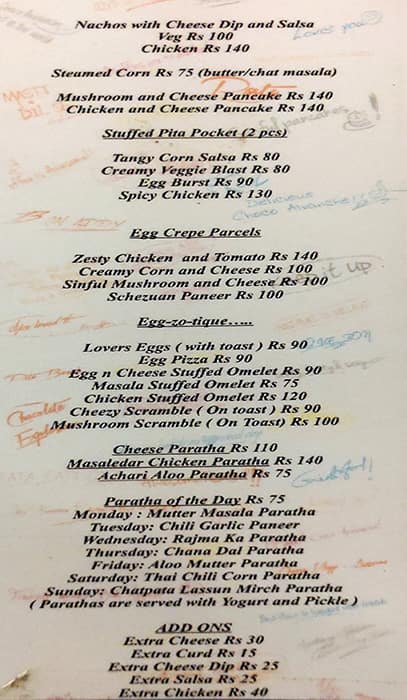 Nachos with Cheese Dip and Salsa
Veg Rs 100
Chicken Rs 140
Loves you
Steamed Corn Rs 75 (butter/chat masala)
Mushroom and Cheese Pancake Rs 140
Chicken and Cheese Pancake Rs 140
pancakes
Stuffed Pita Pocket (2 pcs)
Tangy Corn Salsa Rs 80
Creamy Veggie Blast Rs 80
Egg Burst Rs 90
Spicy Chicken Rs 130
Delicious
Choco Avalanche!!
Egg Crepe Parcels
Zesty Chicken and Tomato Rs 140
Creamy Corn and Cheese Rs 100
it up
Sinful Mushroom and Cheese Rs 100
Schezuan Paneer Rs 100
Egg-zo-tique.....
Lovers Eggs ( with toast ) Rs 90
Egg Pizza Rs 90
Egg n Cheese Stuffed Omelet Rs 90
Masala Stuffed Omelet Rs 75
Chicken Stuffed Omelet Rs 120
Chocolate
Cheezy Scramble ( On toast ) Rs 90
Mushroom Scramble ( On Toast) Rs 100
Cheese Paratha Rs 110
Masaledar Chicken Paratha Rs 140
Achari Aloo Paratha Rs 75
Paratha of the Day Rs 75
Monday : Mutter Masala Paratha
Tuesday: Chili Garlic Paneer
Wednesday: Rajma Ka Paratha
Thursday: Chana Dal Paratha
Friday: Aloo Mutter Paratha
Saturday: Thai Chili Corn Paratha
Sunday: Chatpata Lassun Mirch Paratha
( Parathas are served with Yogurt and Pickle )
ADD ONS
Extra Cheese Rs 30
Extra Curd Rs 15
Extra Cheese Dip Rs 25
Extra Salsa Rs 25
Extra Chicken Rs 40